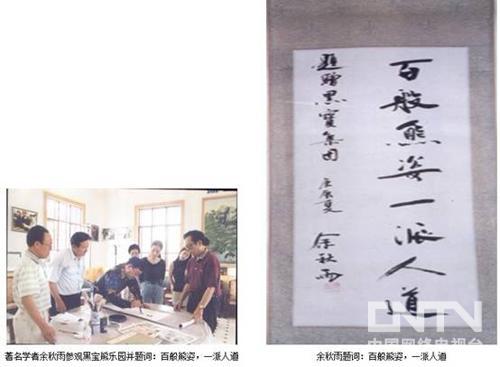 百般熊姿一派人道
題贈黑寶集团 庚辰夏 余秋雨
CNTV
中国网络电视台
著名学者余秋雨参观黑宝熊乐园并题词：百般熊姿，一派人道
余秋雨题词：百般熊姿，一派人道